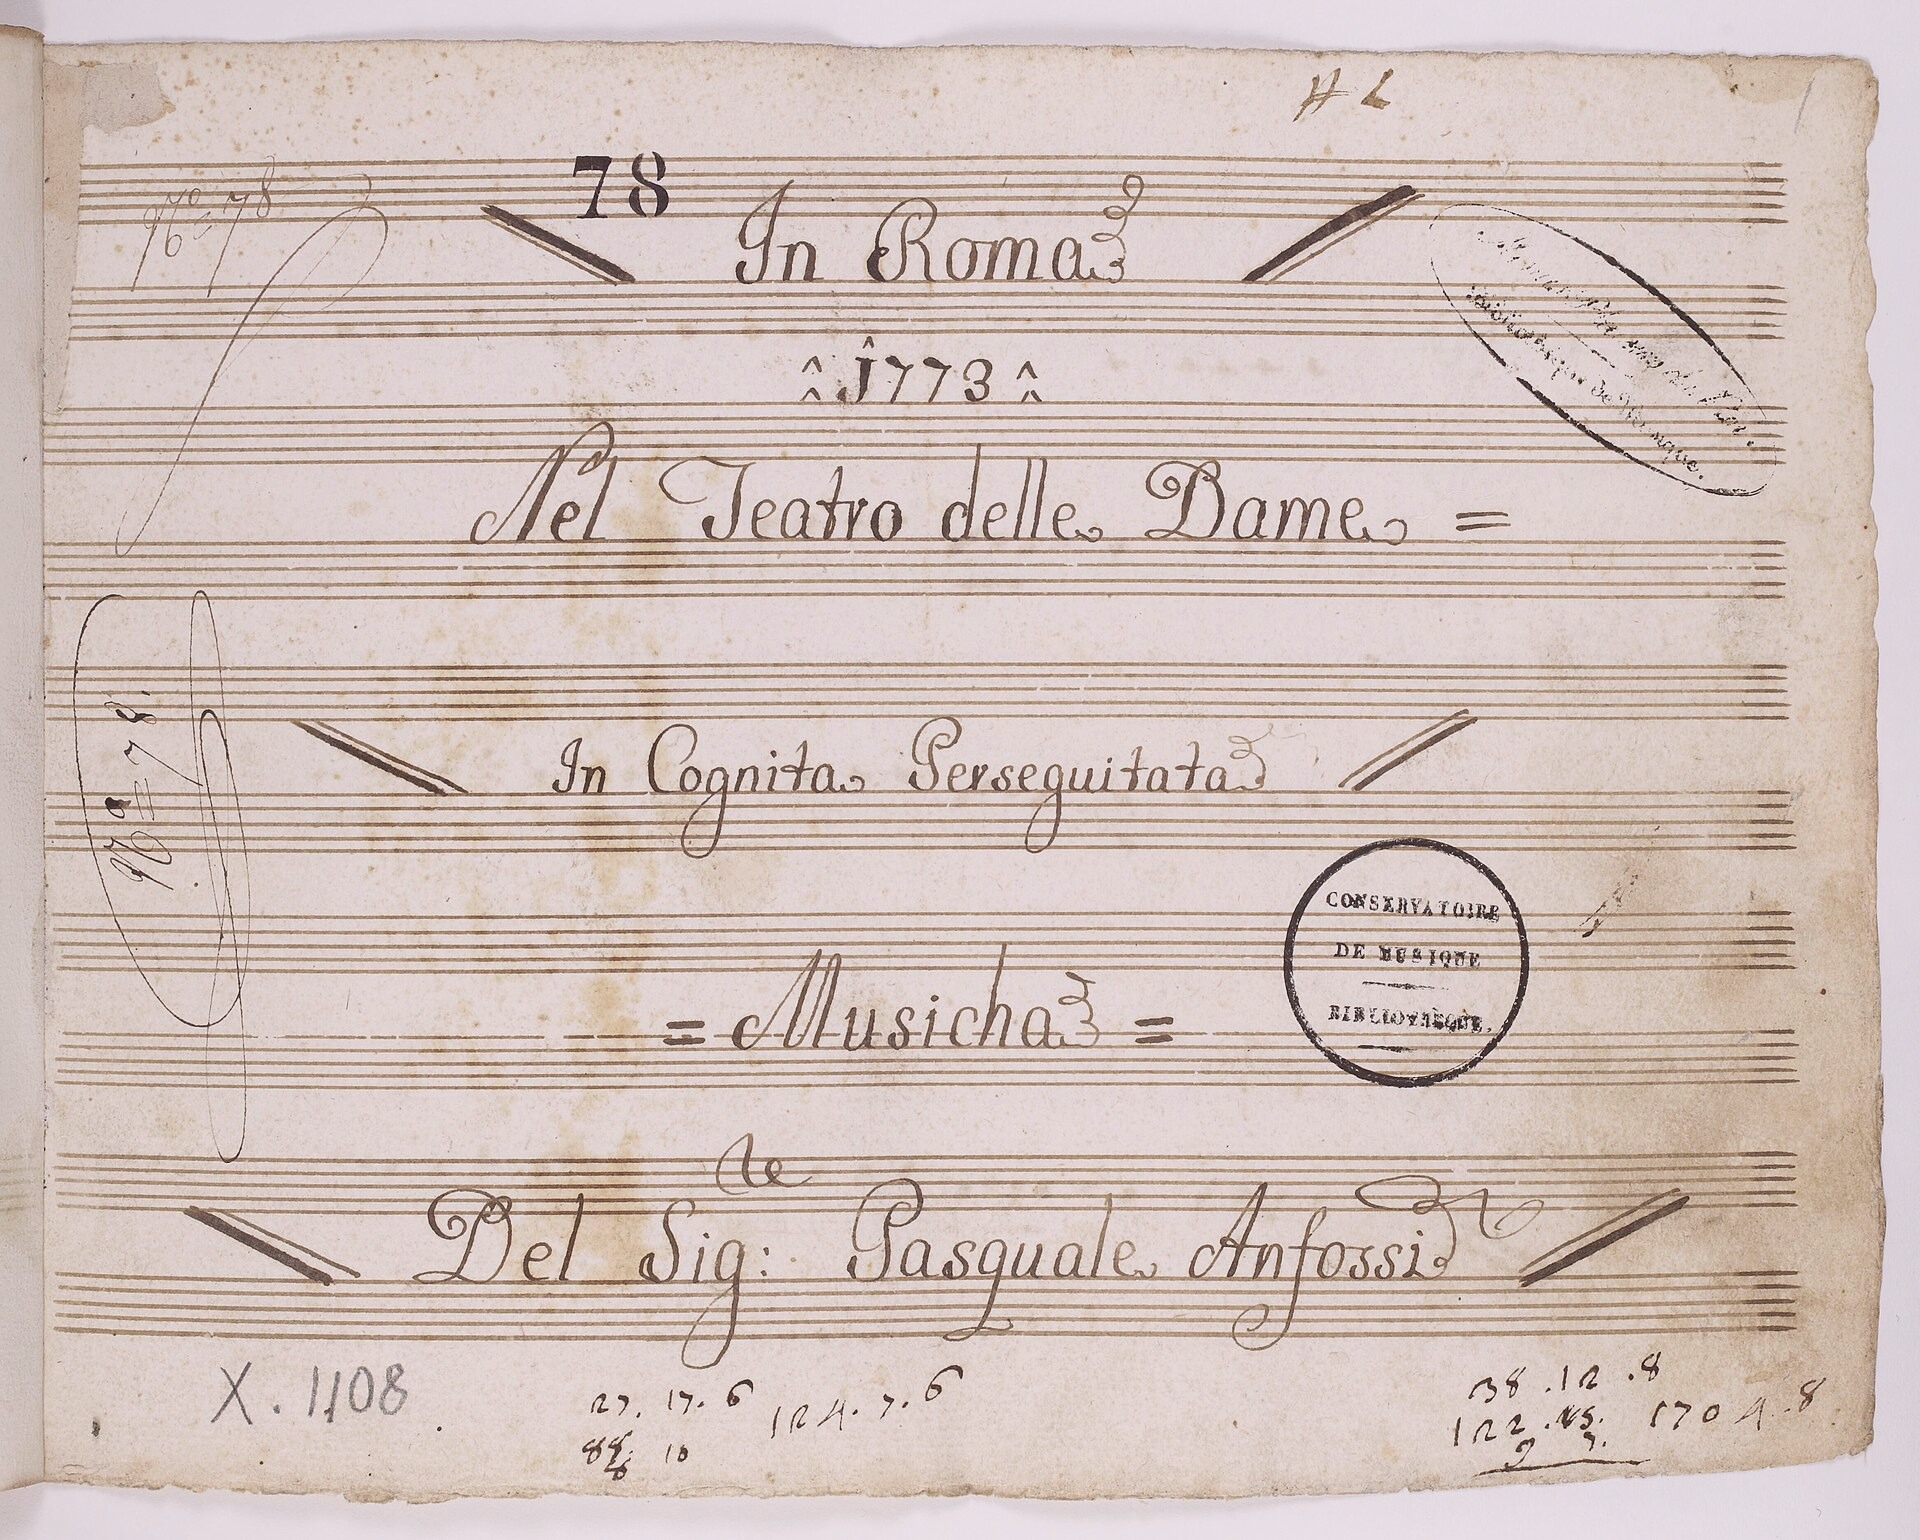 78
In Roma
1773
Nº 78
Nel Teatro delle Dame =
Bibliothèque de Musique.
In Cognita Perseguitata
Nº 78.
CONSERVATOIRE
DE MUSIQUE
BIBLIOTHÈQUE.
= Musicha =
Del Sig:re Pasquale Anfossi
X. 1108
27. 17. 6
124. 7. 6
10
38 . 12 . 8
122
170 4 . 8